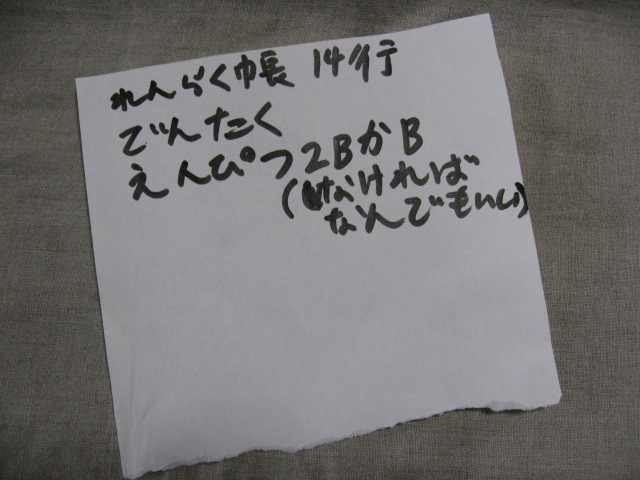 れんらく帳 14行
でんたく
えんぴつ2BかB
(なければ
なんでもいい)